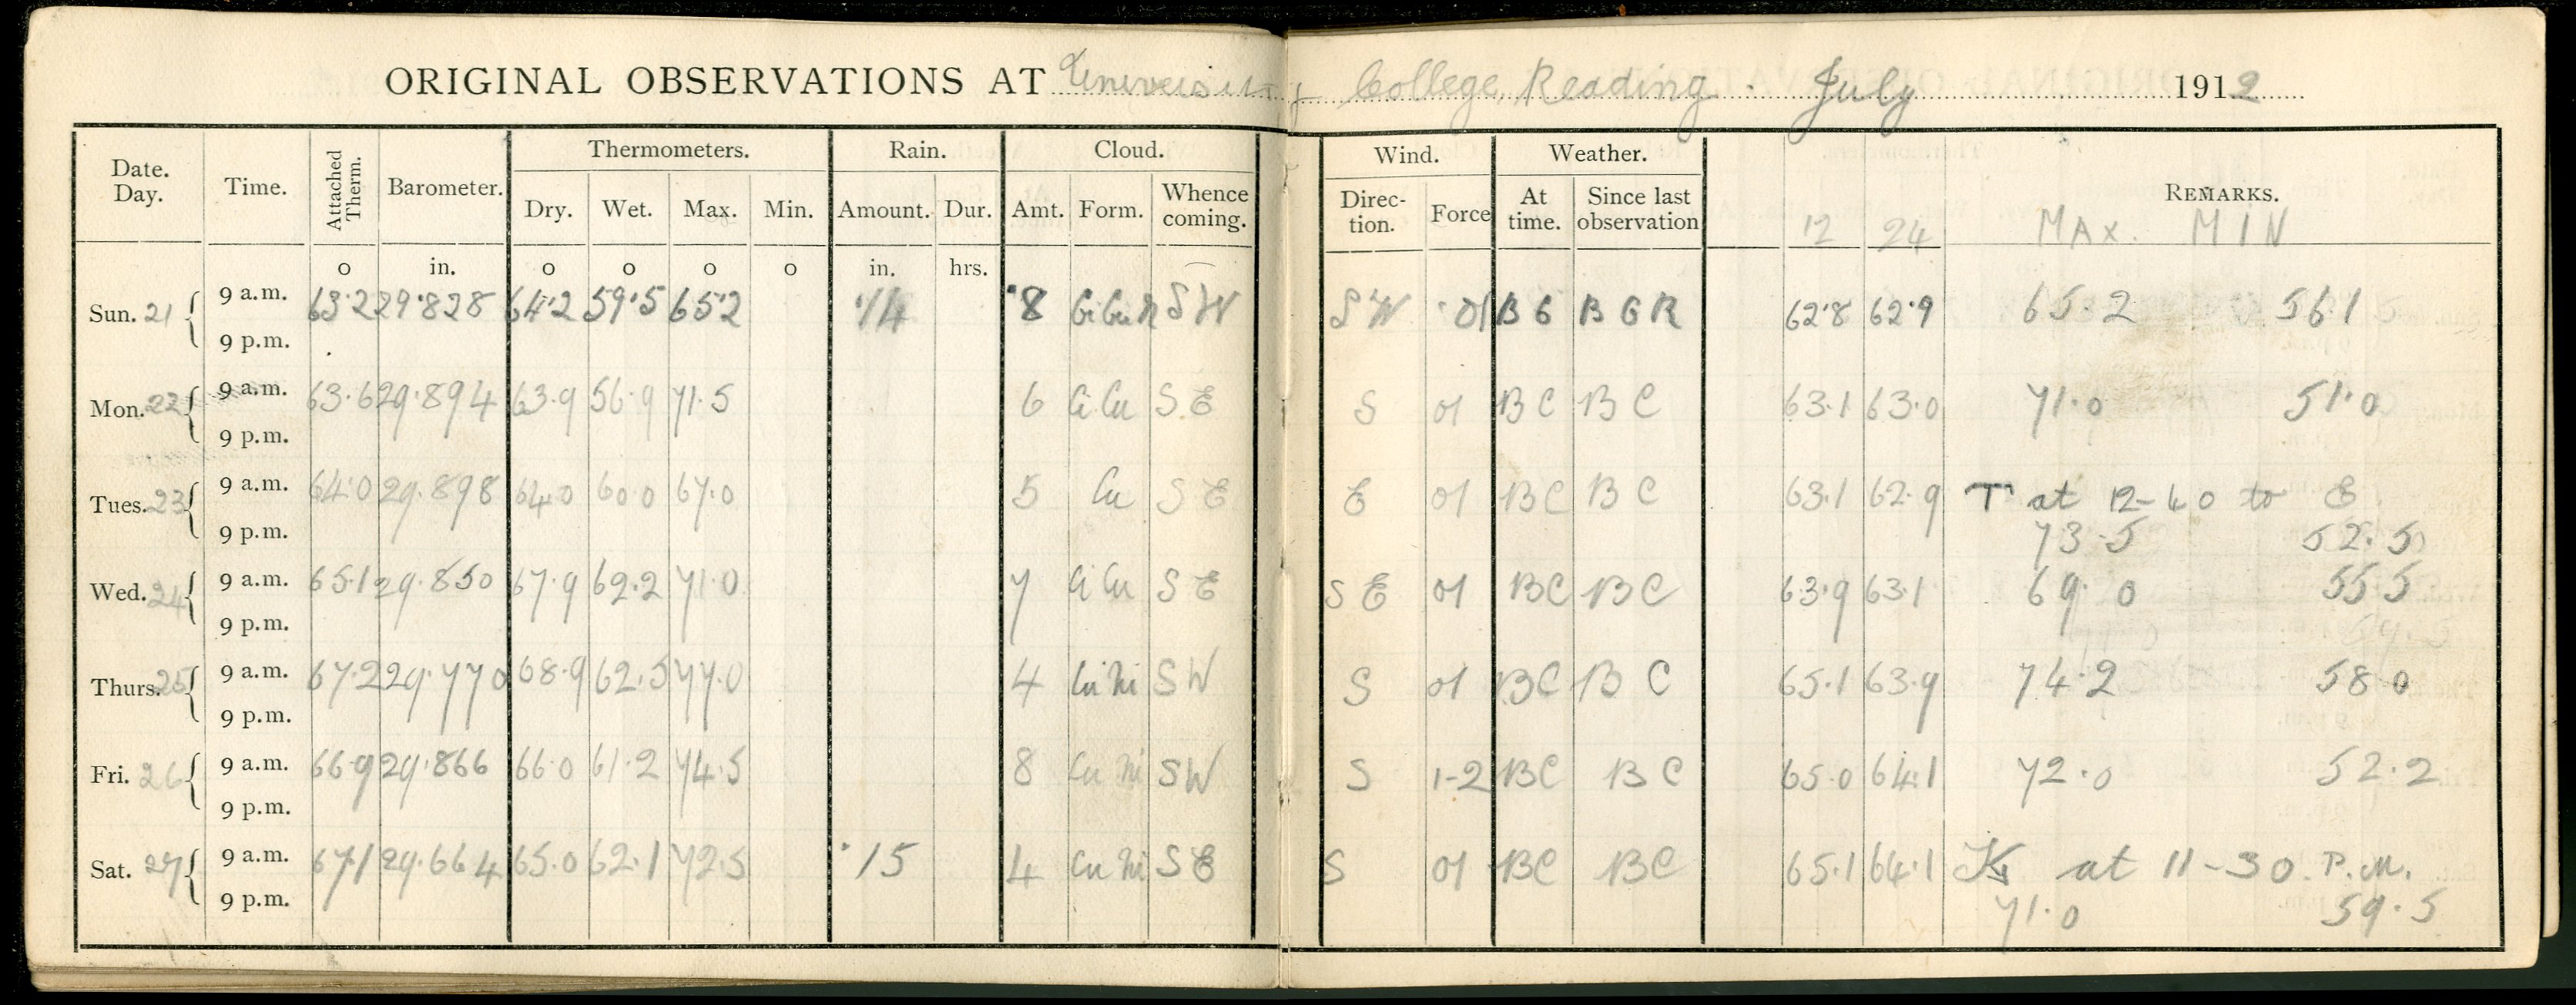 ORIGINAL OBSERVATIONS AT University College Reading. July 1912
Date. Day. Time. Attached Therm. Barometer. Thermometers. Rain. Cloud. Wind. Weather. REMARKS.
Dry. Wet. Max. Min. Amount. Dur. Amt. Form. Whence coming. Direc- tion. Force At time. Since last observation 12 24 MAX. MIN
o in. o o o o in. hrs.
Sun. 21 9 a.m. 63.2 29.828 64.2 59.5 65.2 .14 8 Ci Cu N S W S W 01 B C B C R 62.8 62.9 65.2 56.1
9 p.m.
Mon. 22 9 a.m. 63.6 29.894 63.9 56.9 71.5 6 Ci Cu S.E S 01 B C B C 63.1 63.0 71.0 51.0
9 p.m.
Tues. 23 9 a.m. 64.0 29.898 64.0 60.0 67.0 5 Cu S E E 01 B C B C 63.1 62.9 T at 12-40 to E.
9 p.m. 73.5 52.5
Wed. 24 9 a.m. 65.1 29.850 67.9 62.2 71.0 7 Ci Cu S E S E 01 BC BC 63.9 63.1 69.0 55.5
9 p.m.
Thurs. 25 9 a.m. 67.2 29.770 68.9 62.5 77.0 4 Cu Ni S W S 01 BC B C 65.1 63.9 74.2 58.0
9 p.m.
Fri. 26 9 a.m. 66.9 29.866 66.0 61.2 74.5 8 Cu Ni S W S 1-2 BC B C 65.0 64.1 72.0 52.2
9 p.m.
Sat. 27 9 a.m. 67.1 29.664 65.0 62.1 72.5 .15 4 Cu Ni S E S 01 BC BC 65.1 64.1 at 11-30. P.M.
9 p.m. 71.0 59.5